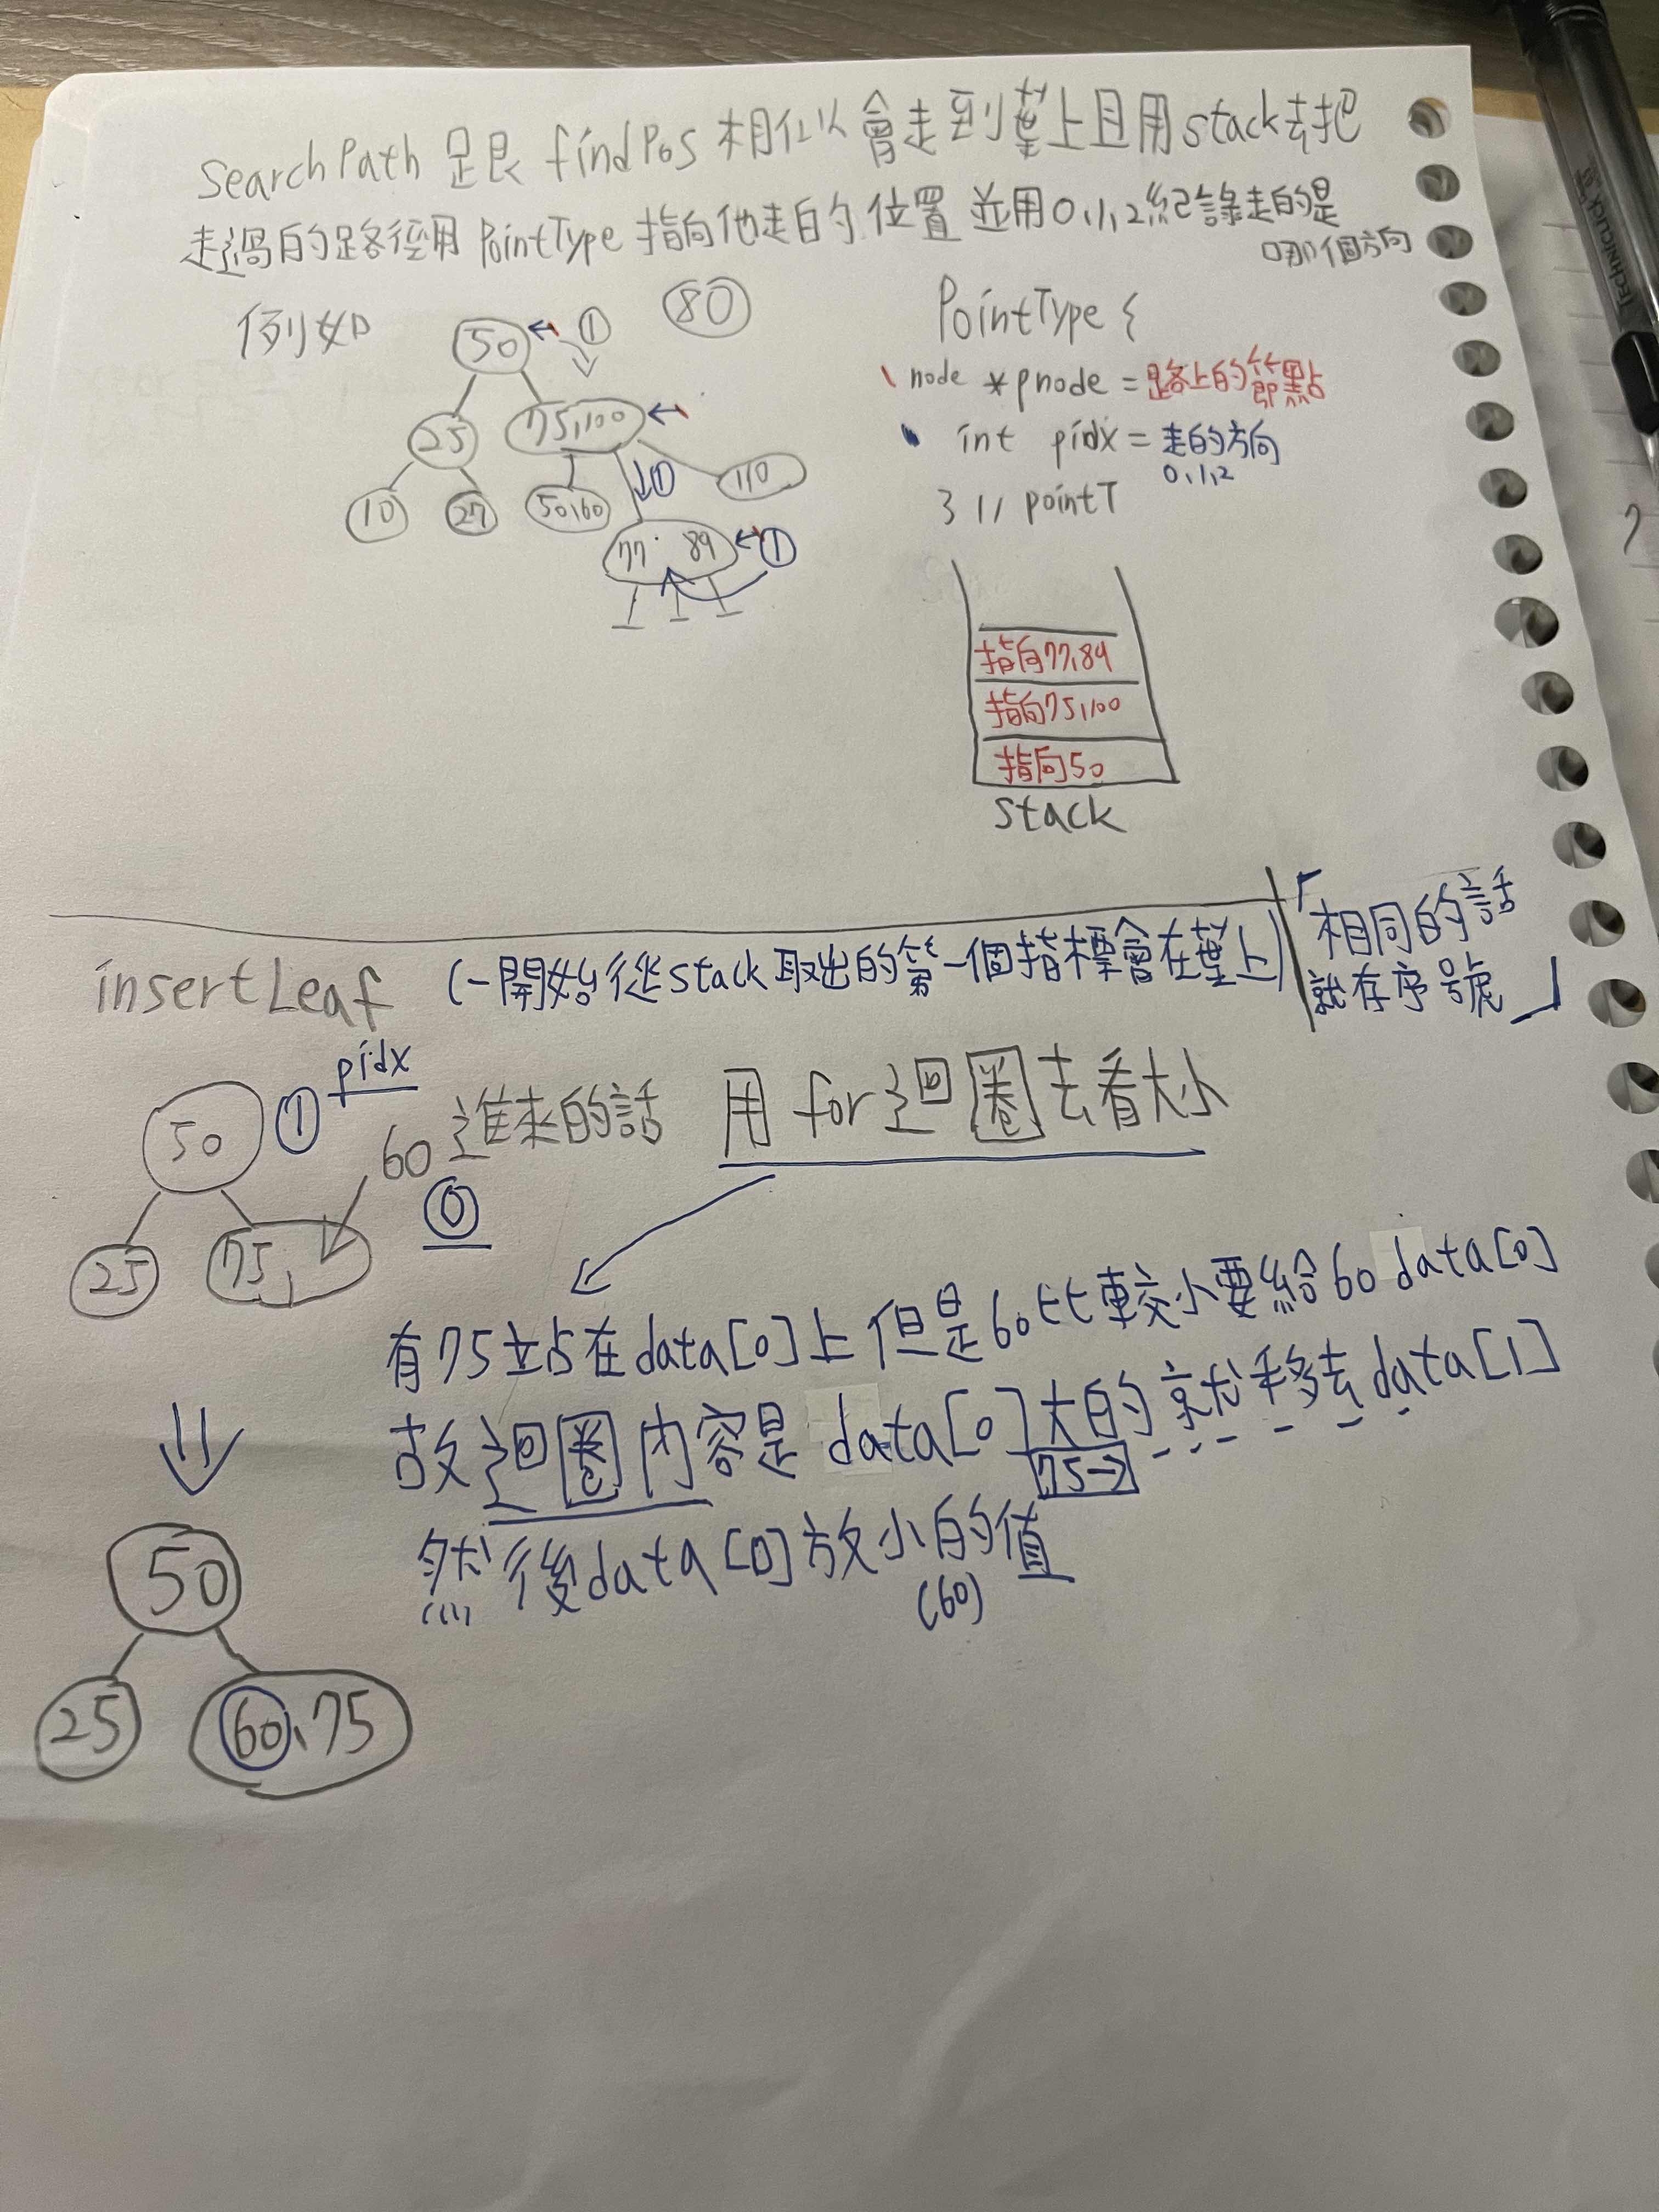 SearchPath 是跟 findPos 相似 會走到葉上且用stack去把
走過的路徑用 PointType 指向他走的位置 並用0,1,2紀錄走的是
哪個方向
例如
80
50
①
25
75,100
10
27
50,60
①
110
77 89
①
PointType {
node *pnode = 路上的節點
int pidx = 走的方向
0,1,2
} // pointT
指向77,89
指向75,100
指向50
stack
insertLeaf (一開始從stack取出的第一個指標會在葉上)
「相同的話
就存序號」
pidx
50
①
60進來的話 用for迴圈去看大小
⓪
25
75,
有75站在data[0]上但是60比較小要給60 data[0]
故迴圈內容是 data[0]大的就移去data[1]
75→
然後data[0]放小的值
(60)
50
25
60、75